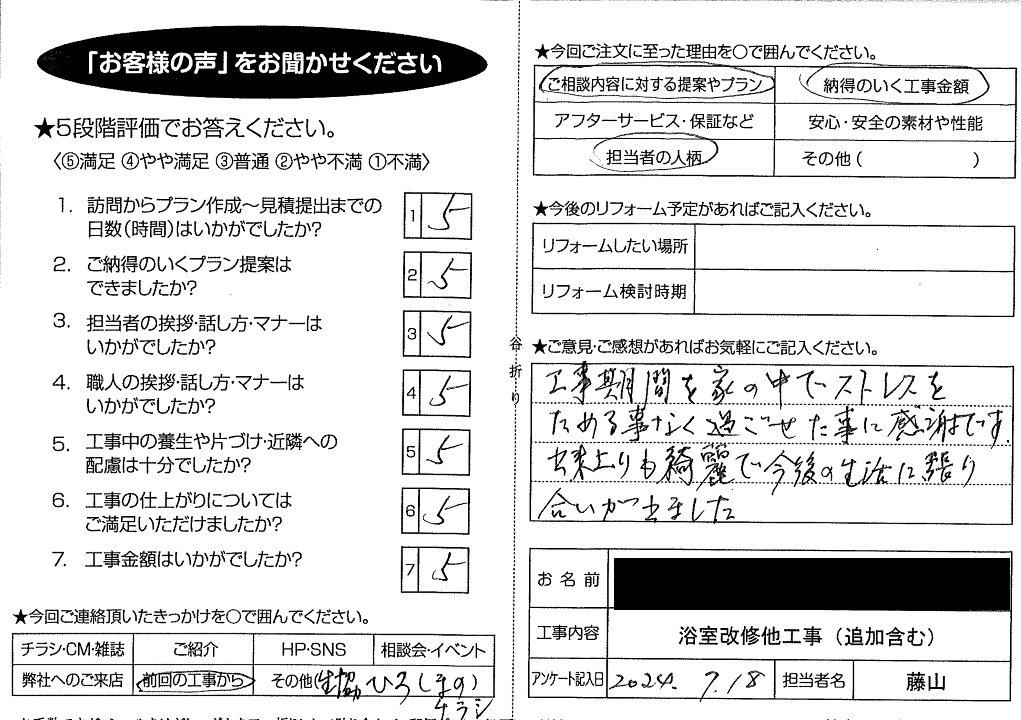 「お客様の声」をお聞かせください
★5段階評価でお答えください。
〈⑤満足 ④やや満足 ③普通 ②やや不満 ①不満〉
1. 訪問からプラン作成～見積提出までの
日数(時間)はいかがでしたか?
1 5
2. ご納得のいくプラン提案は
できましたか?
2 5
3. 担当者の挨拶・話し方・マナーは
いかがでしたか?
3 5
4. 職人の挨拶・話し方・マナーは
いかがでしたか?
4 5
5. 工事中の養生や片づけ・近隣への
配慮は十分でしたか?
5 5
6. 工事の仕上がりについては
ご満足いただけましたか?
6 5
7. 工事金額はいかがでしたか?
7 5
★今回ご連絡頂いたきっかけを〇で囲んでください。
チラシ・CM・雑誌 ご紹介 HP・SNS 相談会・イベント
弊社へのご来店 前回の工事から その他(生協ひろしまの)
チラシ
谷折り
★今回ご注文に至った理由を〇で囲んでください。
ご相談内容に対する提案やプラン 納得のいく工事金額
アフターサービス・保証など 安心・安全の素材や性能
担当者の人柄 その他( )
★今後のリフォーム予定があればご記入ください。
リフォームしたい場所
リフォーム検討時期
★ご意見・ご感想があればお気軽にご記入ください。
工事期間を家の中でストレスを
ためる事なく過ごせた事に感謝です。
出来上りも綺麗で今後の生活に張り
合いが出ました
お名前
工事内容 浴室改修他工事（追加含む）
アンケート記入日 2024. 7.18 担当者名 藤山